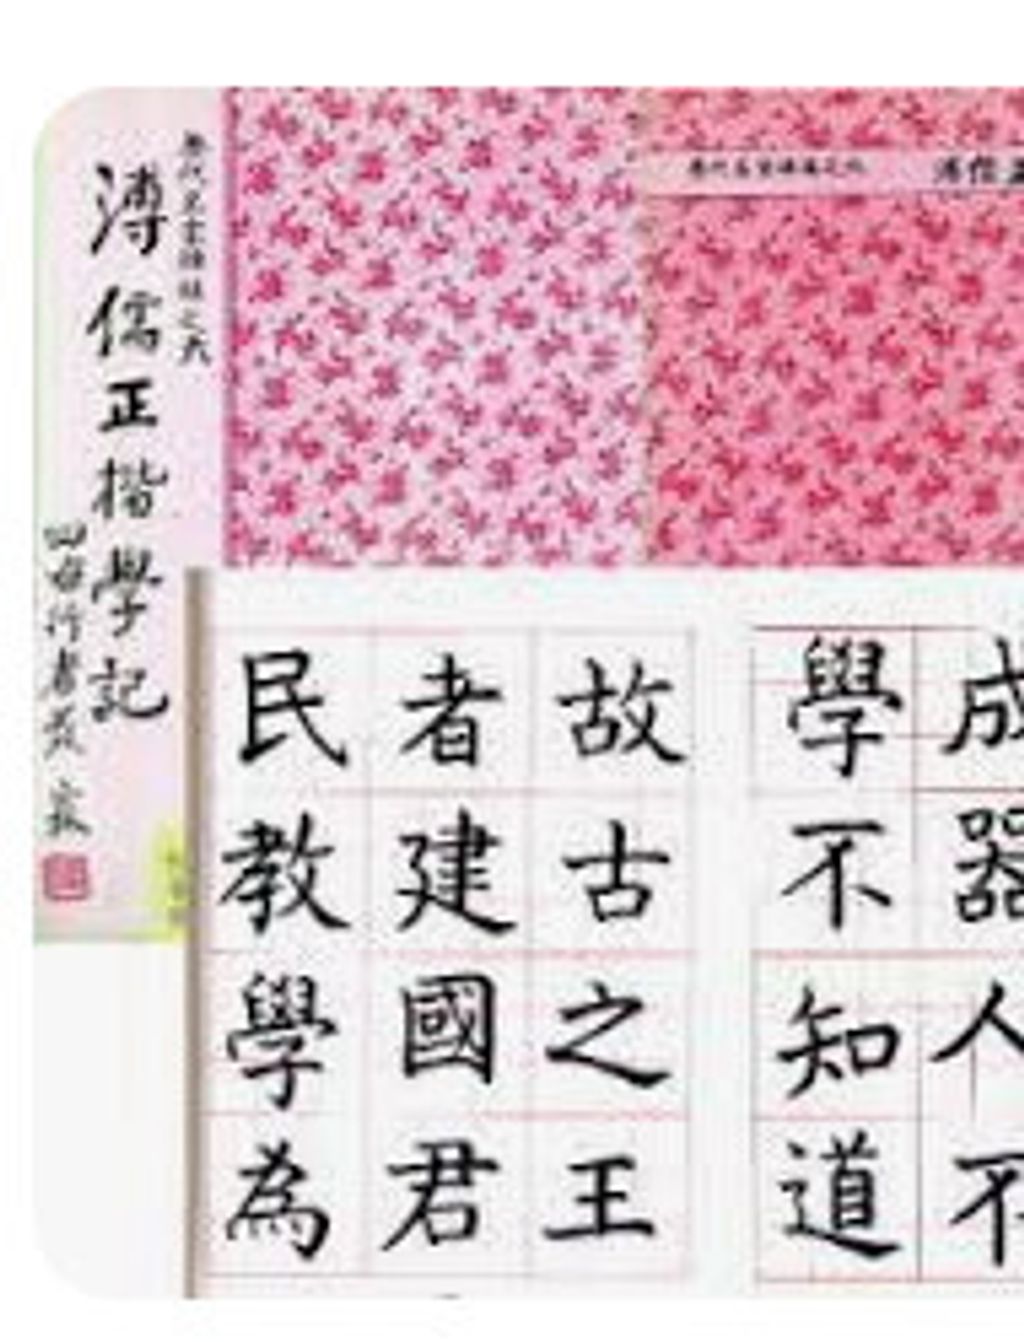 溥儒正楷學記
成器人不
學不知道
故古之王
者建國君
民教學為